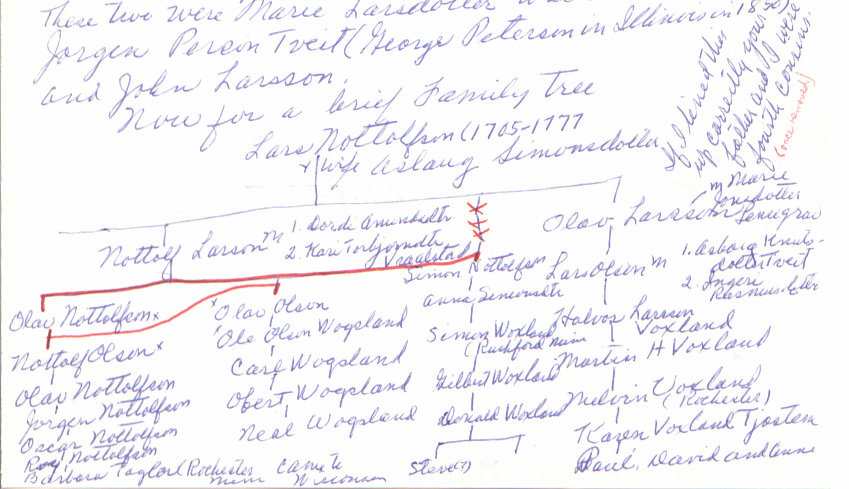 These two were Marie Larsdotter
Jorgen Person Tveit (George Peterson in Illinois in 1850)
and John Larsson.
Now for a brief Family Tree
Lars Nottolfson (1705-1777
wife Aslaug Simonsdotter
If I lined this
up correctly your
father and I were
fourth cousins.
(once removed)
Nottolf Larson m 1. Dordi Amundsdtr
2. Kari Torbjornsdtr
Vraalstad
Olav Larsson m Marie
Jonsdotter
Simon Nottolfson
Anna Simonsdtr
Simon Woxland
(Rushford Minn
Gilbert Woxland
Donald Woxland
Steve(?)
Lars Olsen m 1. Asborg Knuts-
dotter Tveit
2. Inger
Rasmusdatter
Halvor Larson
Voxland
Martin H Voxland
Melvin Voxland
(Rochester)
Karen Voxland Tjostem
Paul, David and Anne
Olav Nottolfson x
Nottolf Olson x
Olav Nottolfson
Jorgen Nottolfson
Oscar Nottolfson
Roy Nottolfson
Barbara Taylor (Rochester
Minn
x Olav Olson
Ole Olson Wogsland
Carl Wogsland
Obert Wogsland
Neal Wogsland
Came to
Wisconsin